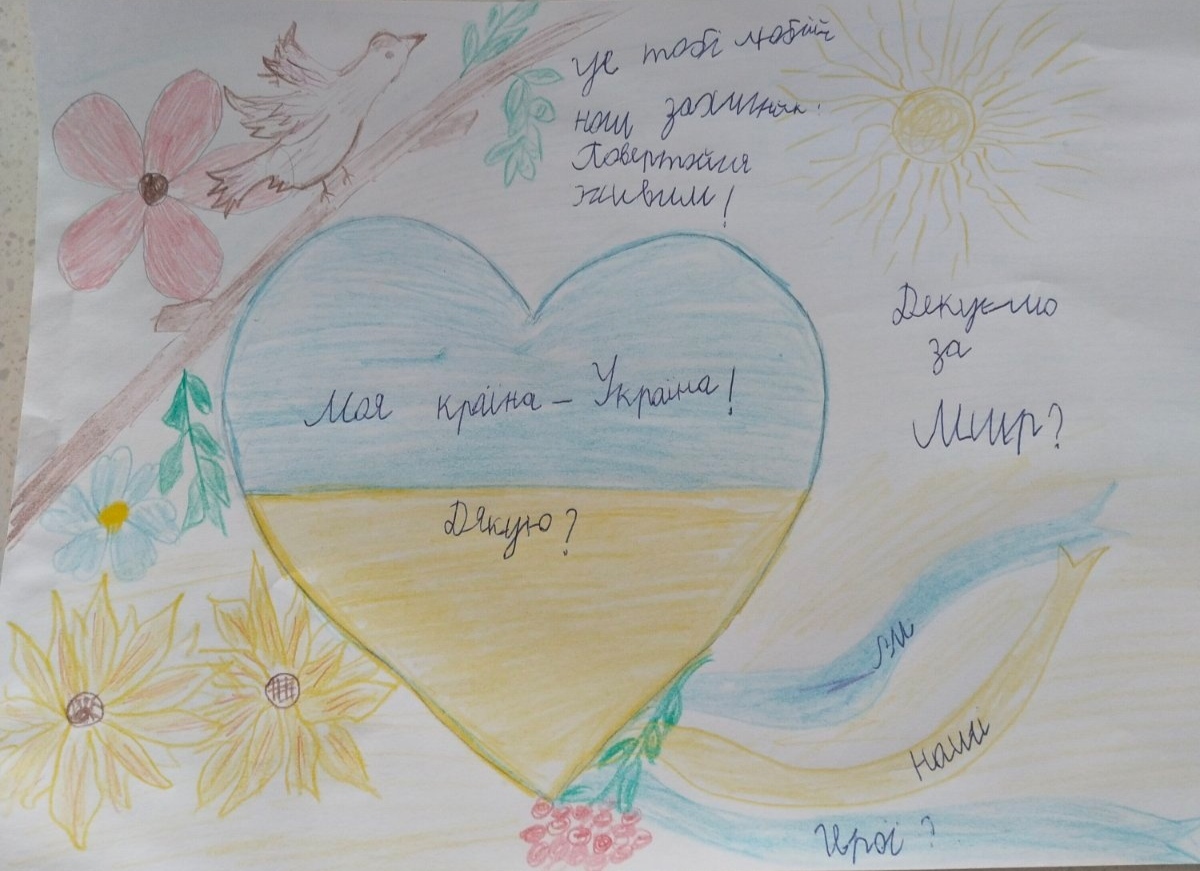 Це тобі любий
наш захисник!
Повертайся
живим!
Дякуємо
за
Мир?
Моя країна - Україна!
Дякую?
ви
наші
Герої?